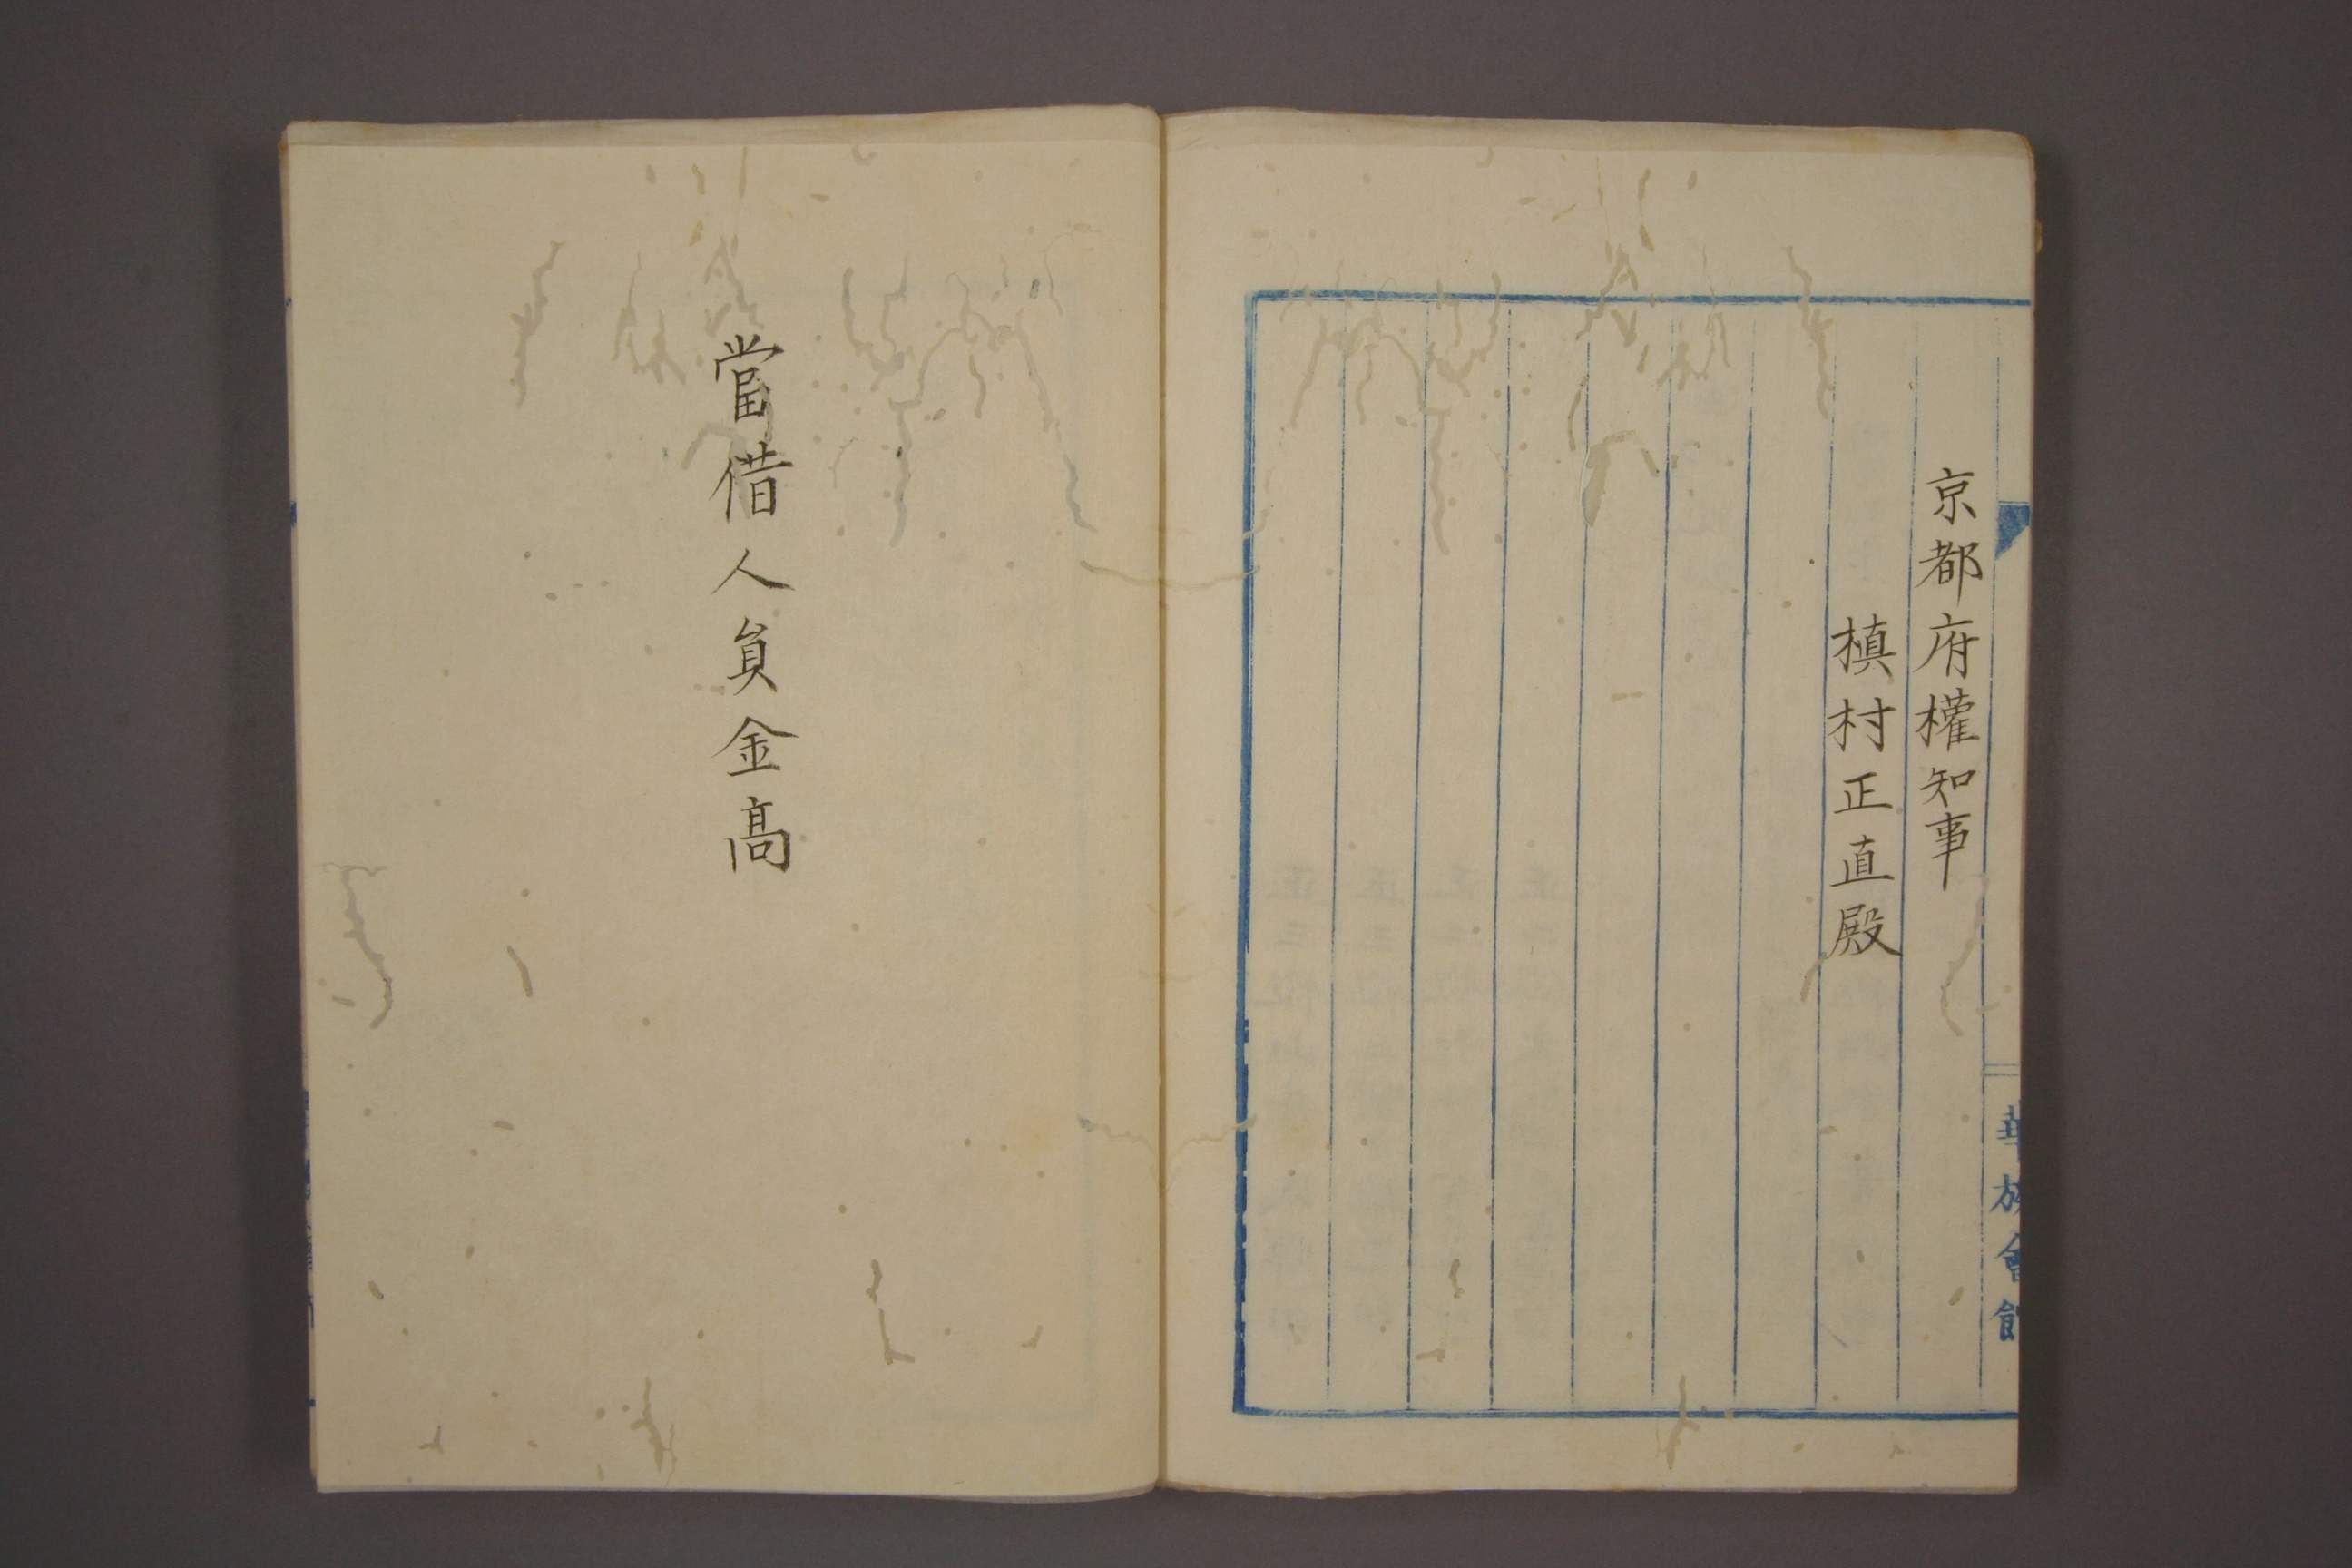 京都府權知事
槇村正直殿
華族會館
當借人員金高